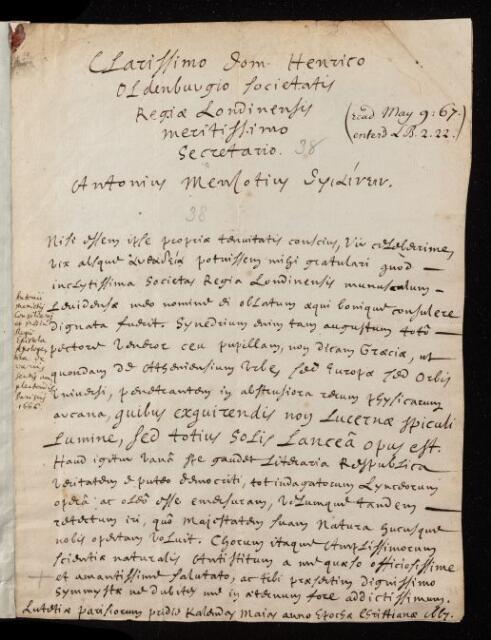 Clarissimo Dom. Henrico
Oldenburgio Societatis
Regiæ Londinensis
meritissimo
Secretario.
(read May 9: 67.
enterd LB. 2. 22.)
38
Antonius Menjotius
38
Nisi essem ipse propriæ tenuitatis conscius, Vir celeberrime,
vix absque potuissem mihi gratulari quod
inclytissima Societas Regia Londinensis munusculum
Levidense meo nomine ei oblatum æqui bonique consulere
dignata fuerit. Synedrium enim tam augustum toto
pectore veneror ceu pupillam, non dicam Græciæ, ut
quondam de Atheniensium Urbe, sed Europæ sed Orbis
Universi, penetrantem in abstrusiora rerum physicarum
arcana, quibus exquirendis non Lucernæ spiculi
Lumine, sed totius Solis Lanceâ opus est.
Haud igitur vanâ spe gaudet Literaria Respublica
veritatem e puteo Democriti, tot indagatorum Lynceorum
operâ ac oleo esse emersuram, velumque tandem
retectum iri, quo Majestatem suam Natura hucusque
nobis opertam voluit. Chorum itaque Amplissimorum
scientiæ naturalis Antistitum a me quæso officiosissime
et amantissime salutato, ac tibi præsertim dignissimo
Symmystæ ne dubites me in æternum fore addictissimum.
Lutetiæ parisiorum pridie Kalendas Maias anno Epochæ Christianæ 1667.
Antonii
Epistola
Apologe-
tica de
variis
sectis am-
plectendis
Parisiis
1666